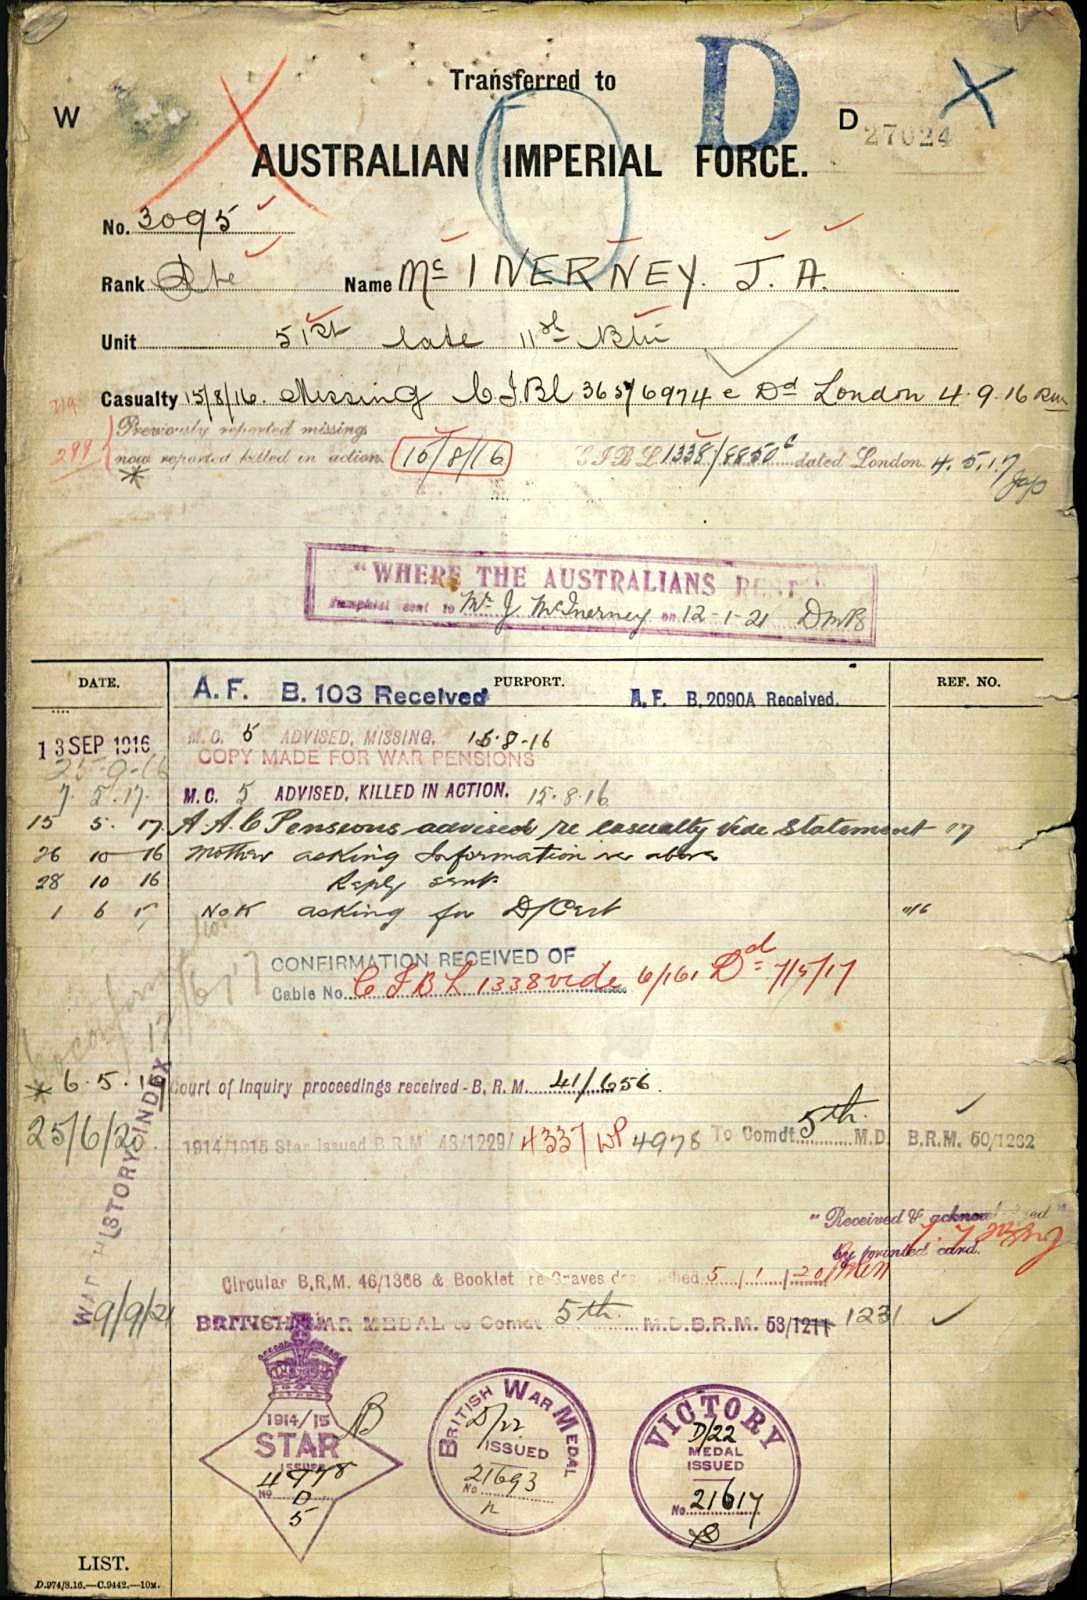 Transferred to
W D 27024
D
AUSTRALIAN IMPERIAL FORCE.
No. 3095
Rank Pte Name McINERNEY. J. A.
Unit 51st late 11th Btn
Casualty 15/8/16. Missing C.I.BL 365/6974 c Dd London 4.9.16
Previously reported missing
299 now reported killed in action. 15/8/16 C.I.B.L 1338/8850c dated London 4.5.17
"WHERE THE AUSTRALIANS REST"
Pamphlet sent to Mr J. McInerney on 12-1-21
DATE. PURPORT. REF. NO.
A. F. B. 103 Received A. F. B. 2090A Received.
13 SEP 1916 M.C. 5 ADVISED, MISSING. 15.8.16
25-9-16 COPY MADE FOR WAR PENSIONS
7. 5. 17. M.C. 5 ADVISED, KILLED IN ACTION. 15.8.16
15 5. 17 A.A.C Pensions advised re casualty vide Statement 17
26 10 16 Mother asking Information re above
28 10 16 Reply sent
1 6 17 NoK asking for D/Cert
CONFIRMATION RECEIVED OF
Cable No. C I B L 1338 vide 6/161 Dd 7/5/17
* 6.5.1 Court of Inquiry proceedings received-B.R.M. 41/656.
25/6/20 1914/1915 Star Issued B.R.M 43/1229/ 4337 WP 4978 To Comdt. 5th. M.D. B.R.M. 50/1232
WAR HISTORY INDEX
"Received & acknowledged"
by printed card.
Circular B.R.M. 46/1368 & Booklet re Graves 5/1/20
9/9/21 BRITISH WAR MEDAL to Comdt 5th M.D.B.R.M. 53/1211 1231
1914/15
STAR
ISSUED
No 4978
D
5
BRITISH WAR MEDAL
D/22
ISSUED
No 21693
VICTORY
D/22
MEDAL
ISSUED
No. 21617
LIST.
D.974/8.16.—C.9442.—10M.